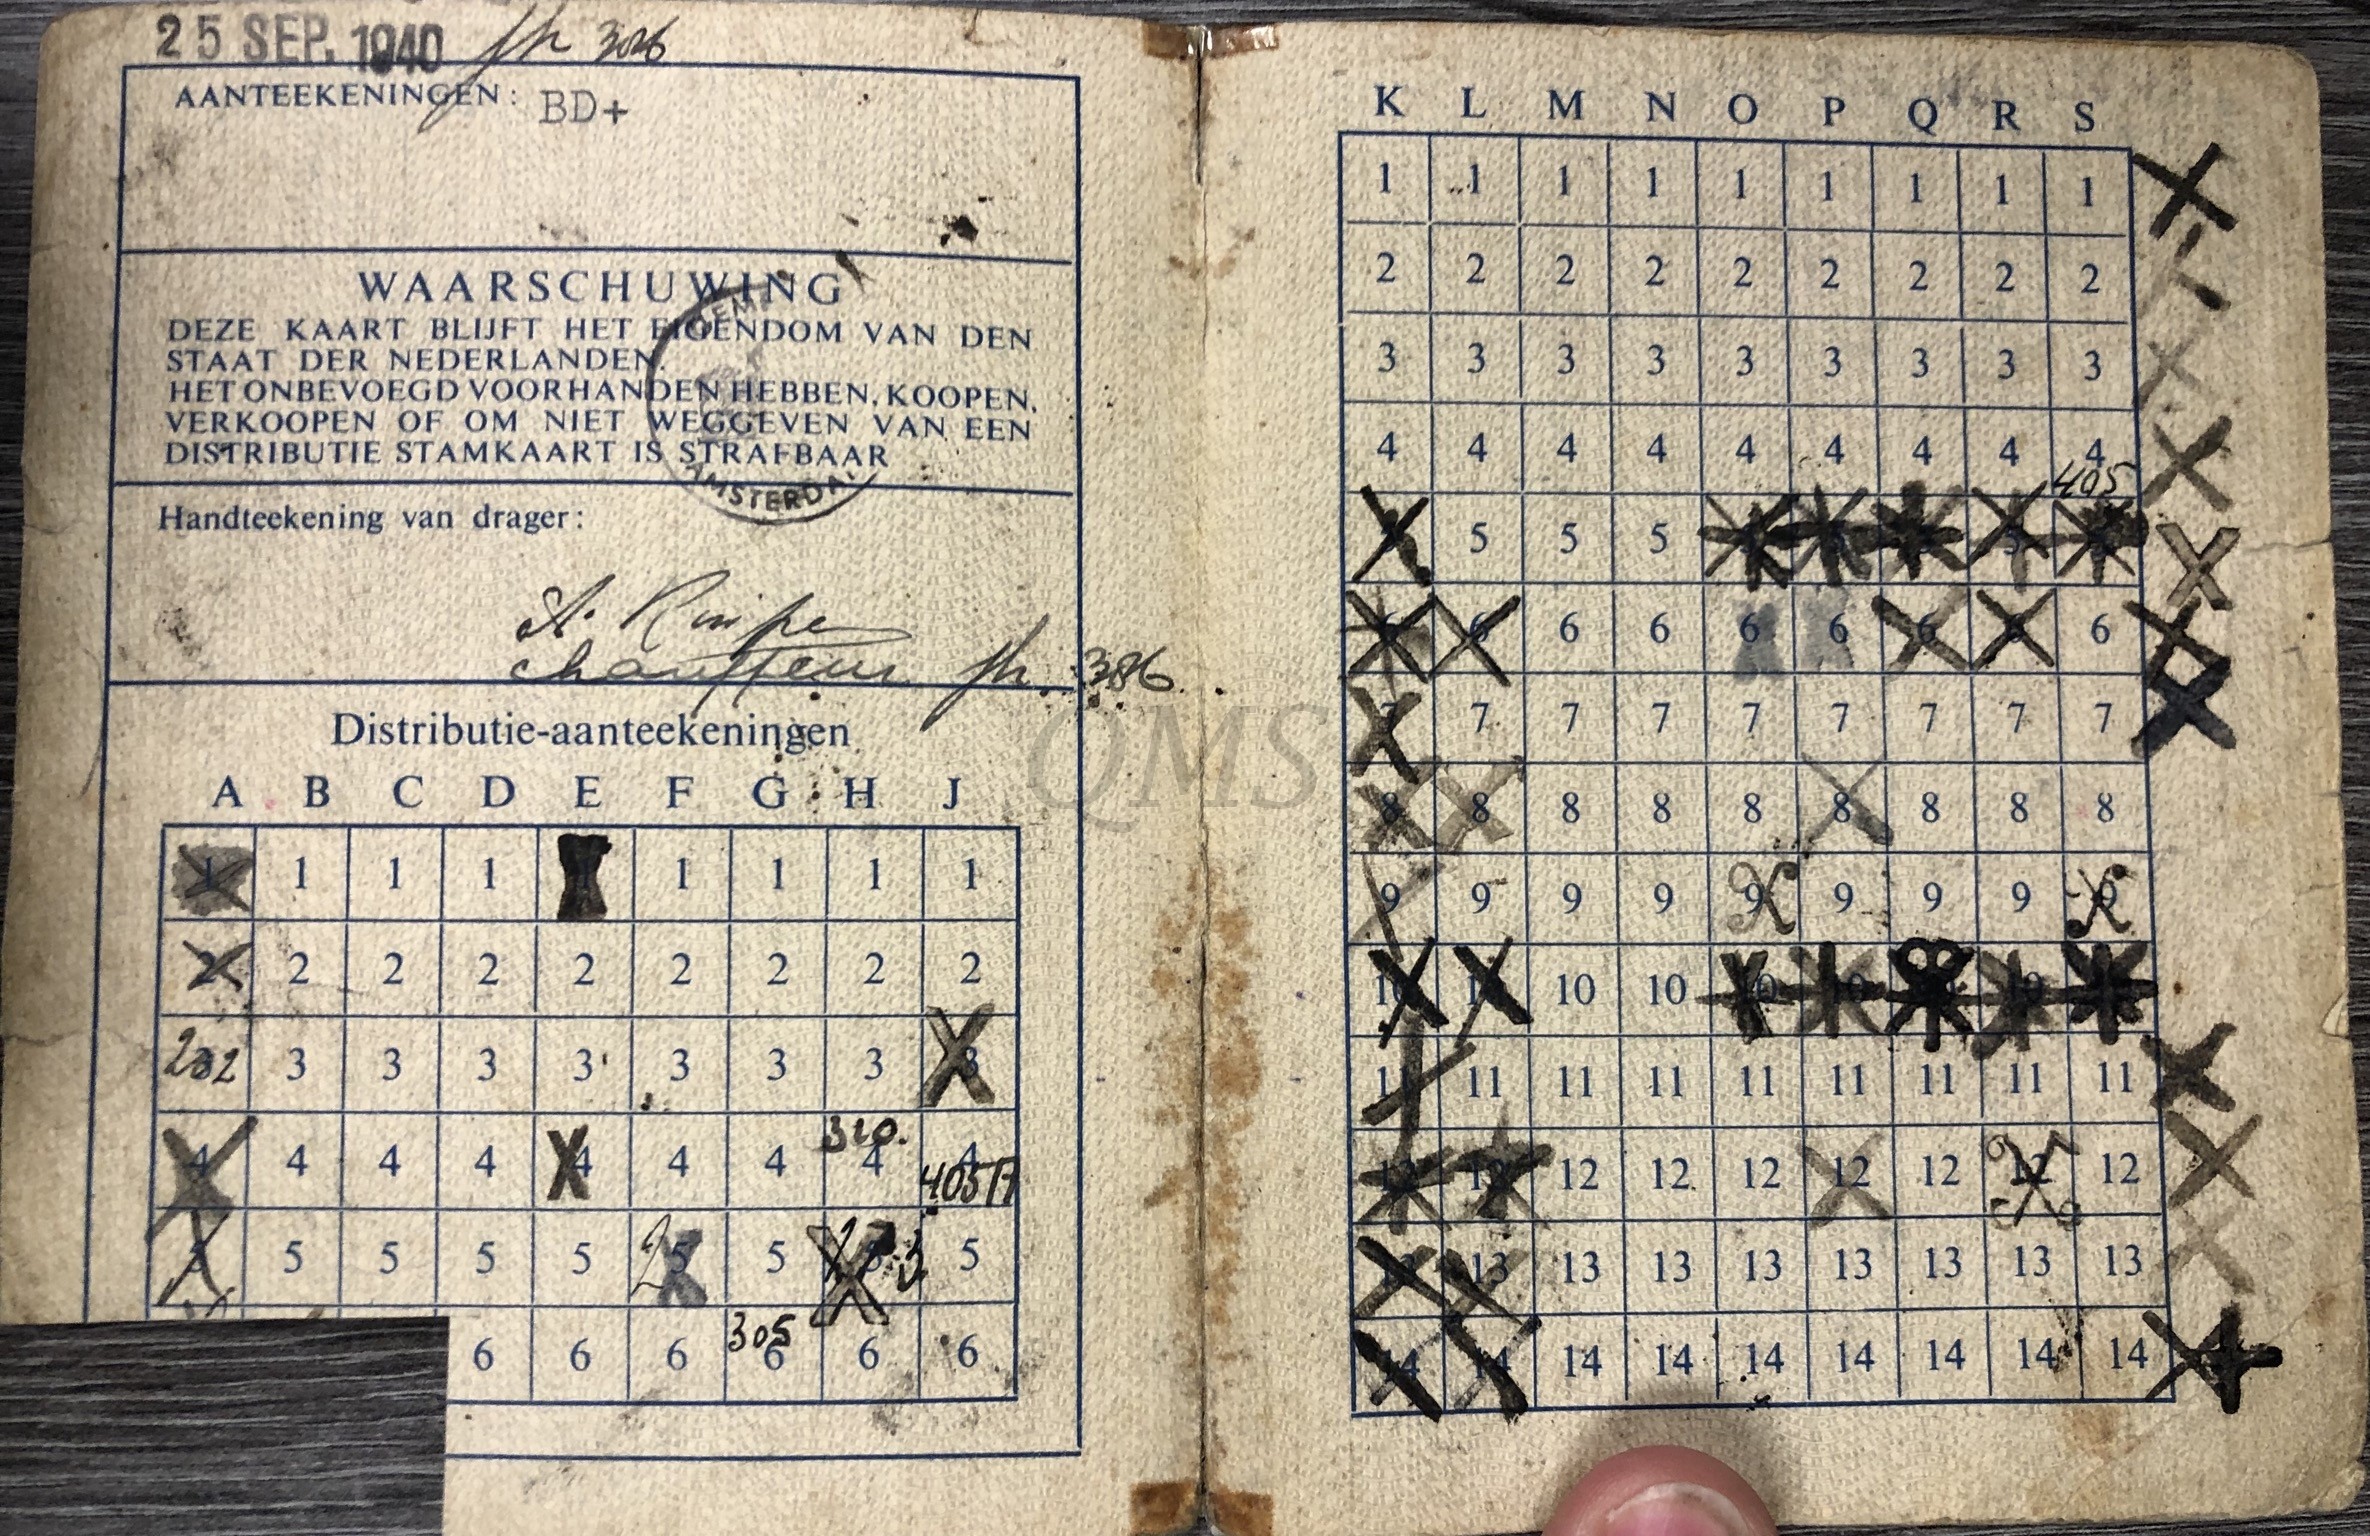 25 SEP. 1940
AANTEEKENINGEN: BD+
WAARSCHUWING
DEZE KAART BLIJFT HET EIGENDOM VAN DEN
STAAT DER NEDERLANDEN.
HET ONBEVOEGD VOORHANDEN HEBBEN, KOOPEN,
VERKOOPEN OF OM NIET WEGGEVEN VAN EEN
DISTRIBUTIE STAMKAART IS STRAFBAAR
AMSTERDAM
Handteekening van drager:
chauffeur
386
Distributie-aanteekeningen
A B C D E F G H J
1 1 1 1 1 1 1 1
2 2 2 2 2 2 2 2 2
202 3 3 3 3 3 3 3 3
310.
4 4 4 4 4 4 4 4 4
405 H
5 5 5 5 5 5 5 5
305
6 6 6 6 6 6
QMS
K L M N O P Q R S
1 1 1 1 1 1 1 1 1
2 2 2 2 2 2 2 2 2
3 3 3 3 3 3 3 3 3
4 4 4 4 4 4 4 4 4
405
5 5 5 5
6 6 6 6 6 6 6 6 6
7 7 7 7 7 7 7 7 7
8 8 8 8 8 8 8 8 8
9 9 9 9 9 9 9 9 9
10 10 10 10 10 10 10
11 11 11 11 11 11 11 11 11
12 12 12 12 12 12 12 12 12
13 13 13 13 13 13 13 13 13
14 14 14 14 14 14 14 14 14